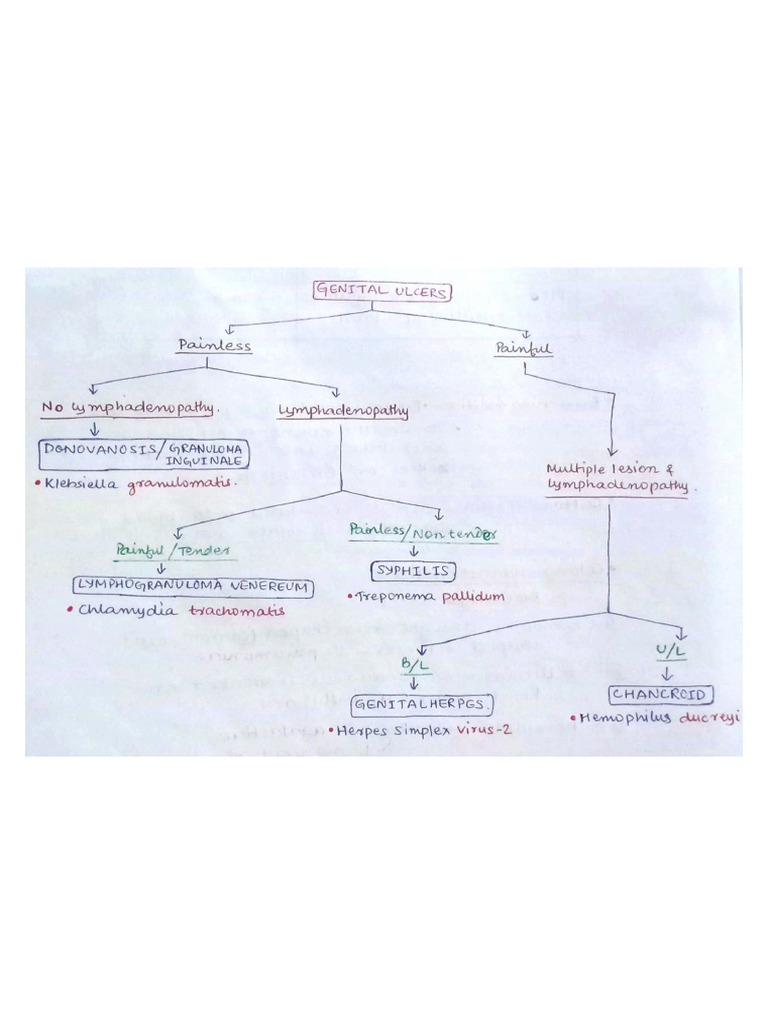 GENITAL ULCERS
Painless
Painful
No lymphadenopathy.
Lymphadenopathy
DONOVANOSIS/GRANULOMA
INGUINALE
• Klebsiella granulomatis.
Multiple lesion &
lymphadenopathy.
Painful/Tender
Painless/Non tender
LYMPHOGRANULOMA VENEREUM
SYPHILIS
• Chlamydia trachomatis
• Treponema pallidum
B/L
U/L
GENITAL HERPES.
CHANCROID
• Herpes simplex virus-2
• Hemophilus ducreyi